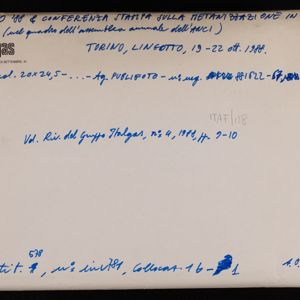 '88 & CONFERENZA STAMPA SULLA METANIZZAZIONE IN
(nel quadro dell'assemblea annuale dell'ANCI)
gas
TORINO, LINGOTTO, 19-22 ott. 1988.
col. 20x24,5 - ... - Ag. PUBLIFOTO - ns. neg.
ITAF/118
Vol. Riv. del Gruppo Italgas, n° 4, 1988, p. 9-10
678
n° inv 781, Collocaz. 16 - 1